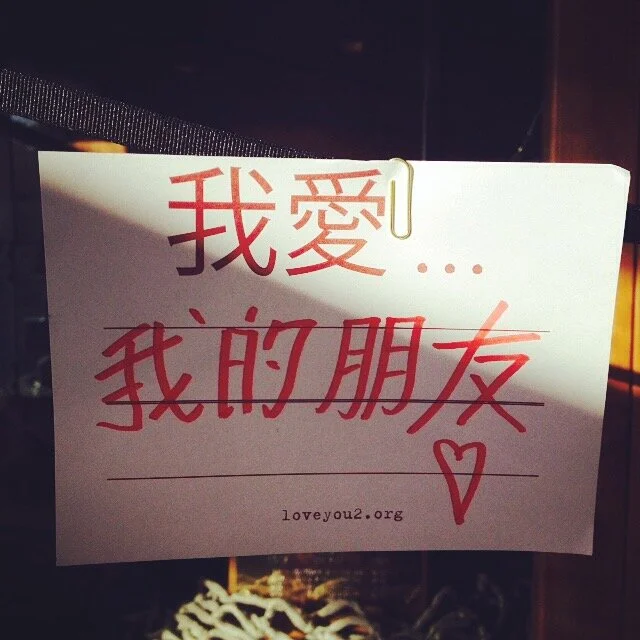 我愛...
我的朋友
loveyou2.org